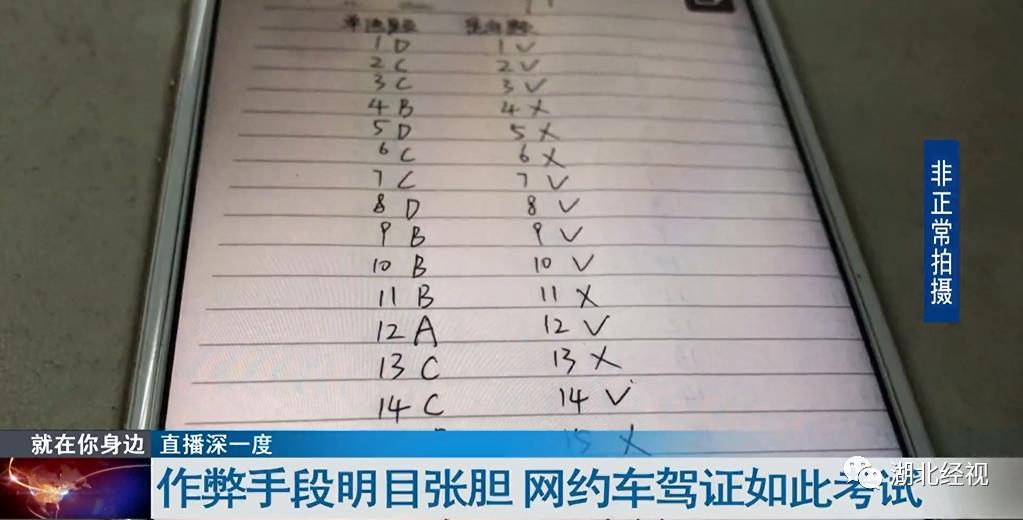 1 D 1 √
2 C 2 √
3 C 3 √
4 B 4 ×
5 D 5 ×
6 C 6 ×
7 C 7 √
8 D 8 √
9 B 9 √
10 B 10 √
11 B 11 ×
12 A 12 √
13 C 13 ×
14 C 14 √
15 ×
非正常拍摄
就在你身边 直播深一度
作弊手段明目张胆 网约车驾证如此考试
湖北经视